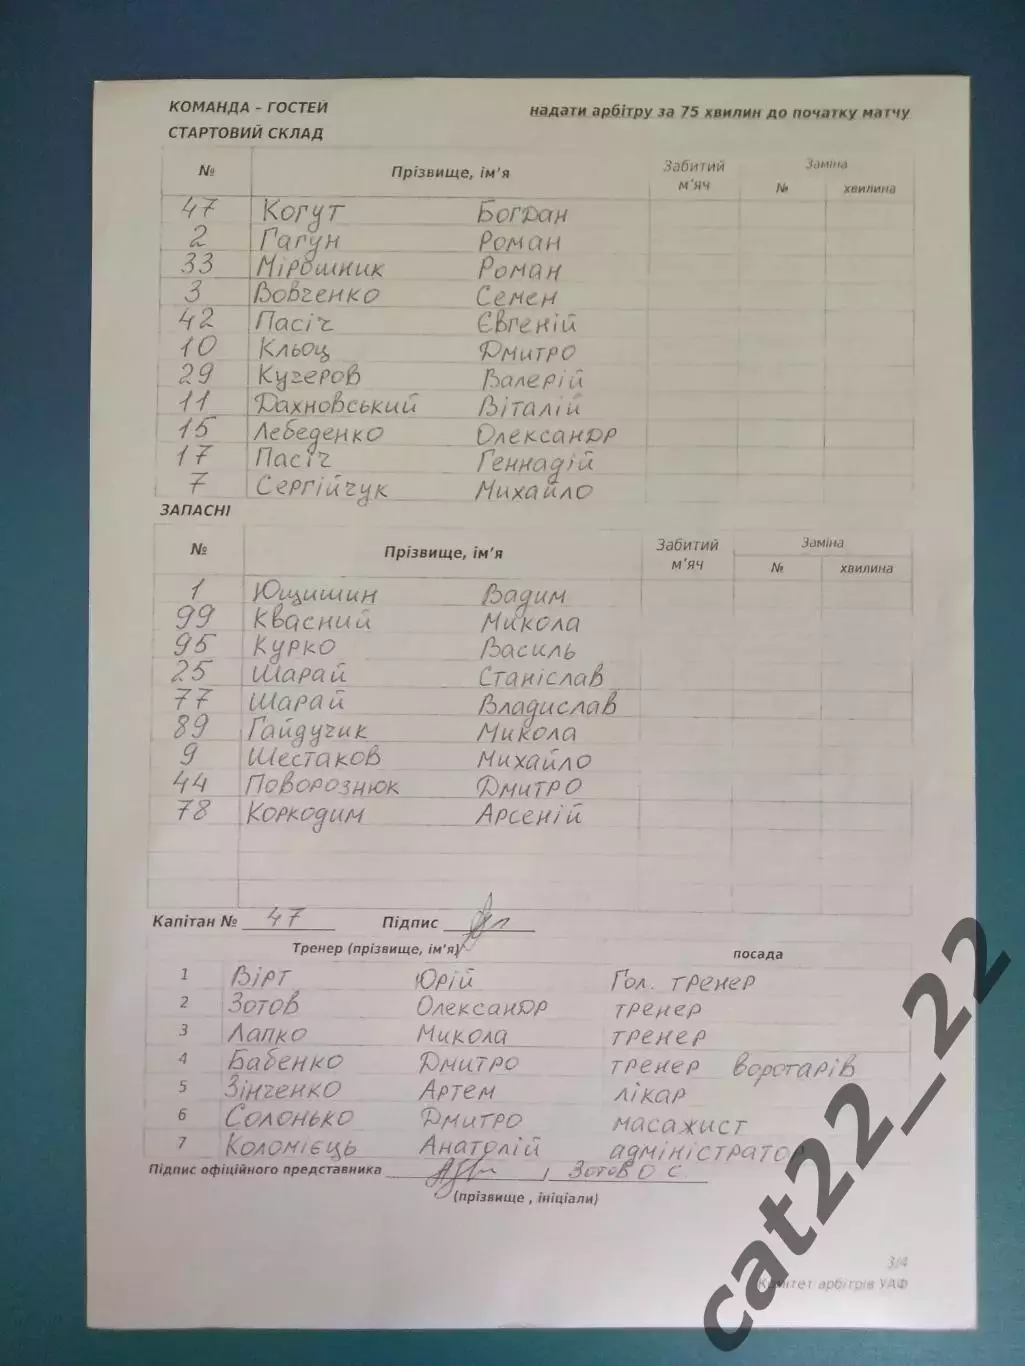 КОМАНДА – ГОСТЕЙ надати арбітру за 75 хвилин до початку матчу
СТАРТОВИЙ СКЛАД
№ Прізвище, ім’я Забитий м’яч Заміна
№ хвилина
47 Когут Богдан
2 Гагун Роман
33 Мірошник Роман
3 Вовченко Семен
42 Пасіч Євгеній
10 Кльоц Дмитро
29 Кучеров Валерій
11 Дахновський Віталій
15 Лебеденко Олександр
17 Пасіч Геннадій
7 Сергійчук Михайло
ЗАПАСНІ
№ Прізвище, ім’я Забитий м’яч Заміна
№ хвилина
1 Ющишин Вадим
99 Квасний Микола
95 Курко Василь
25 Шарай Станіслав
77 Шарай Владислав
89 Гайдучик Микола
9 Шестаков Михайло
44 Поворознюк Дмитро
78 Коркодим Арсеній
Капітан № 47 Підпис
Тренер (прізвище, ім’я) посада
1 Вірт Юрій Гол. тренер
2 Зотов Олександр тренер
3 Лапко Микола тренер
4 Бабенко Дмитро тренер воротарів
5 Зінченко Артем лікар
6 Солонько Дмитро масажист
7 Коломієць Анатолій адміністратор
Підпис офіційного представника , Зотов О С.
(прізвище , ініціали)
3/4
Комітет арбітрів УАФ
cat22_22